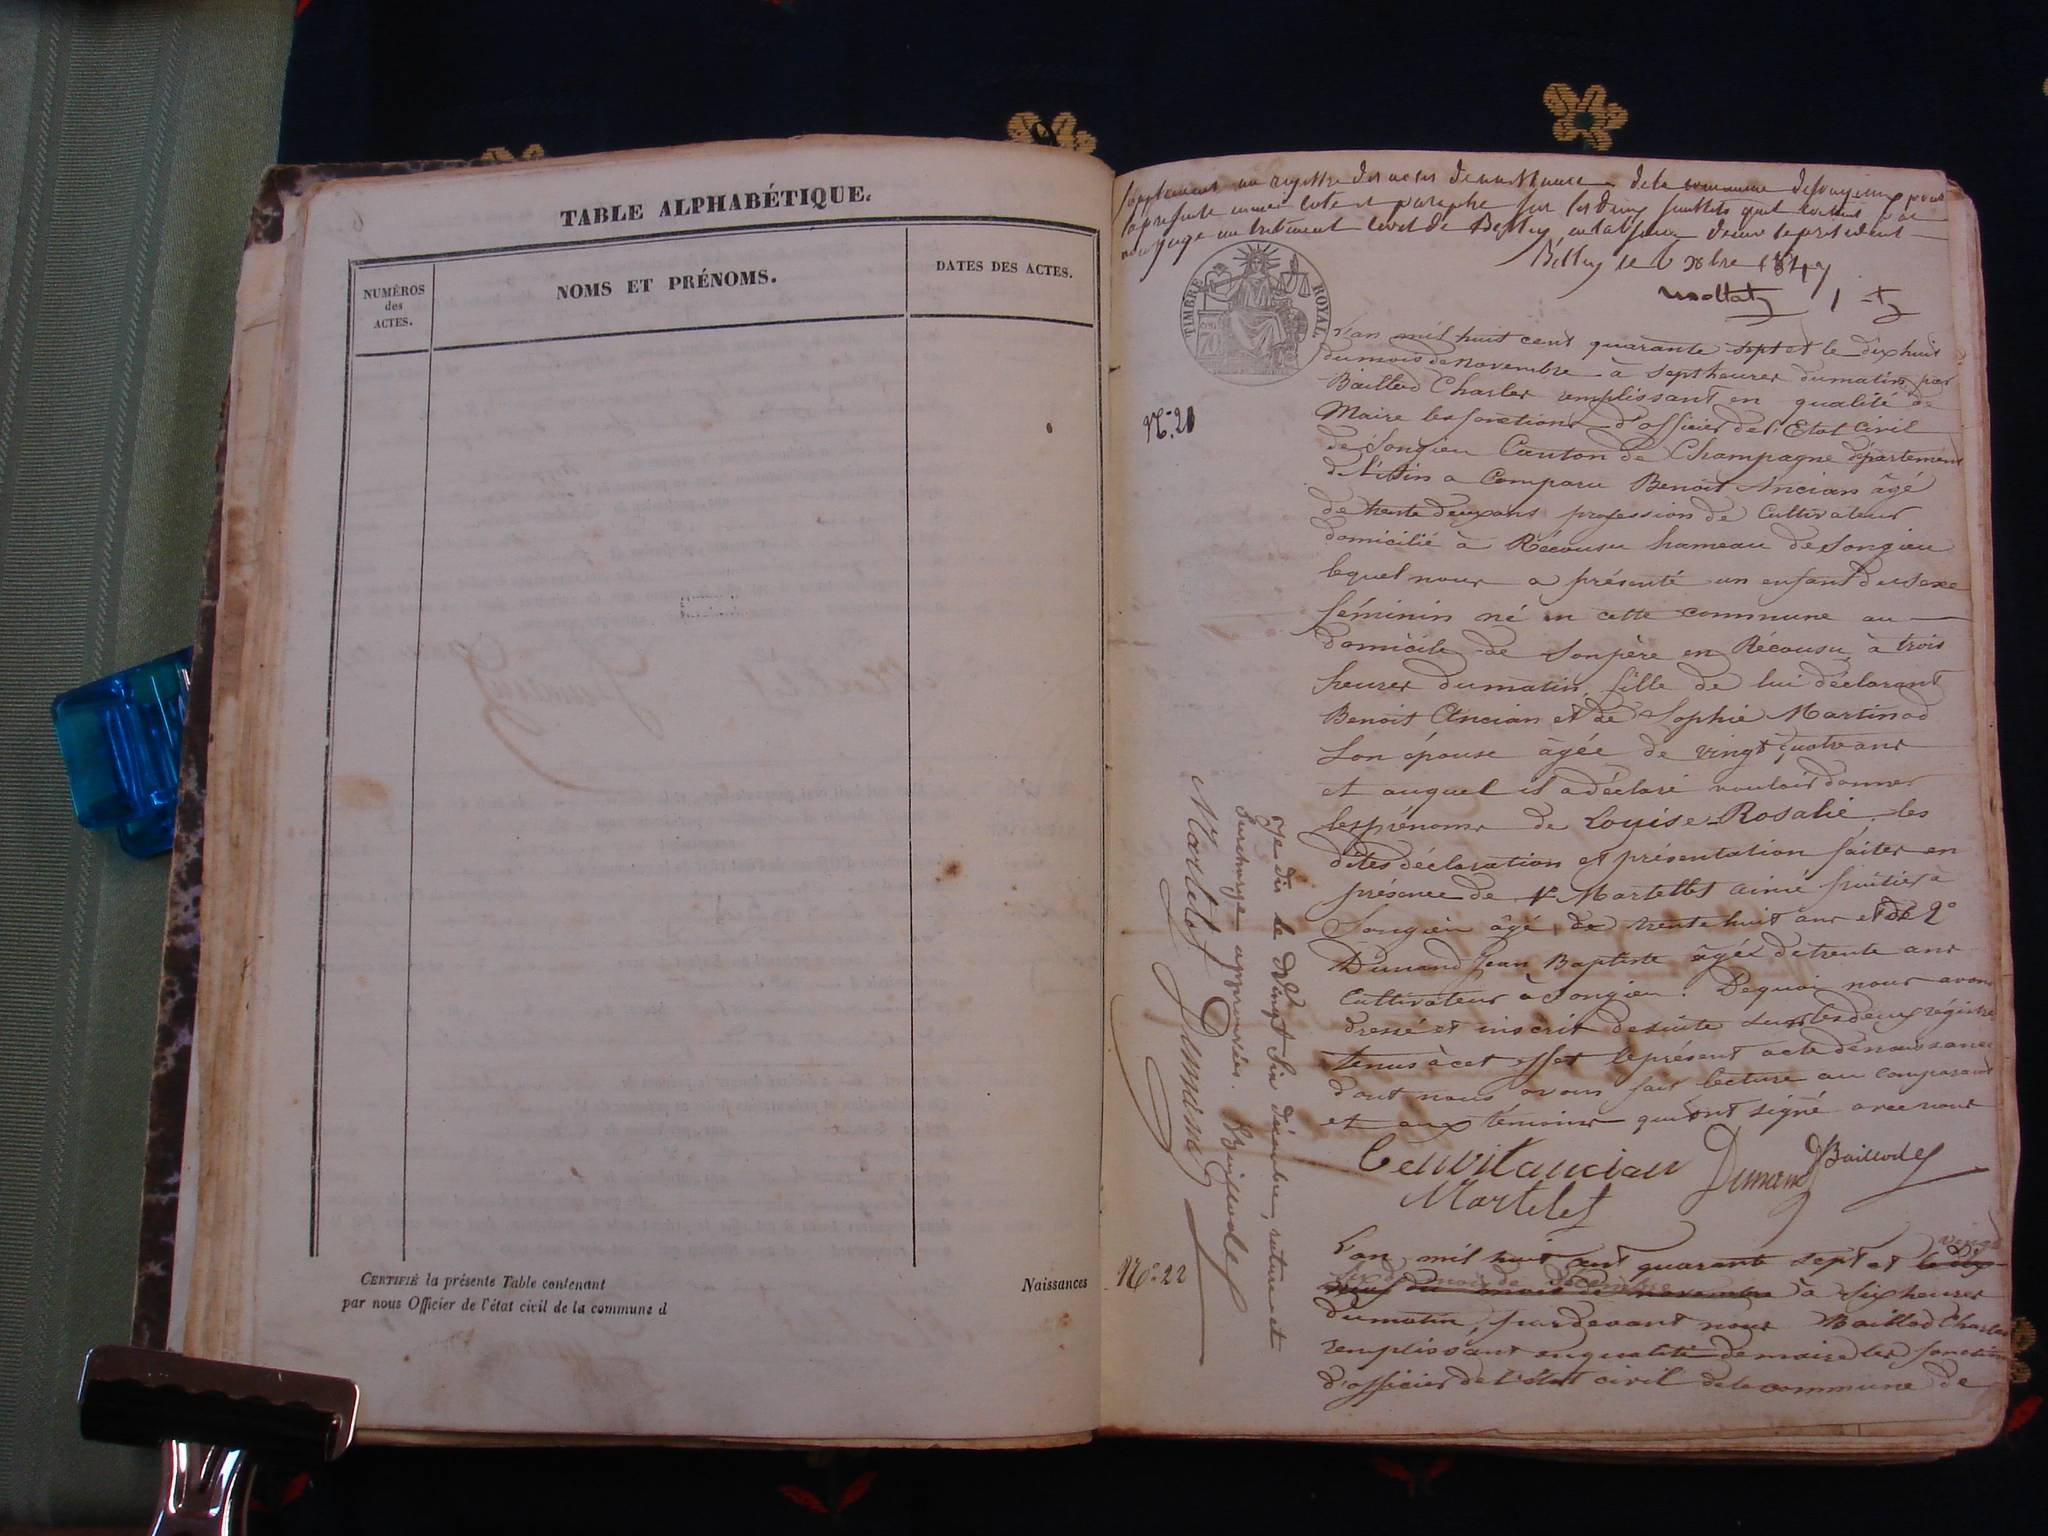 TABLE ALPHABÉTIQUE.
NUMÉROS
des
ACTES.
NOMS ET PRÉNOMS.
DATES DES ACTES.
CERTIFIÉ la présente Table contenant
par nous Officier de l'état civil de la commune d
Naissances
Supplément au registre des actes de naissance de la commune de Songieu pour
la présente année coté et paraphé sur les deux feuillets qu'il contient par
nous juge au tribunal civil de Belley
Belley le 6 Xbre 1847
TIMBRE ROYAL
70
N° 21
L'an mil huit cent quarante sept et le dix huit
du mois de novembre à sept heures du matin par
Baillod Charles remplissant en qualité de
Maire les fonctions d'officier de l'Etat Civil
de Songieu Canton de Champagne département
de l'Ain a Comparu Benoit Ancian âgé
de trente deux ans profession de Cultivateur
domicilié à Récousu hameau de Songieu
lequel nous a présenté un enfant du sexe
féminin né en cette commune au
domicile de son père en Récousu à trois
heures du matin, fille de lui déclarant
Benoit Ancian et de Sophie Martinod
Son épouse âgée de vingt quatre ans
et auquel il a déclaré vouloir donner
les prénoms de Louise-Rosalie, les
dites déclaration et présentation faites en
présence de 1° Martellet aimé fruitier à
Songieu âgé de trente huit ans et de 2°
Dunand Jean Baptiste âgé de trente ans
Cultivateur à Songieu. De quoi nous avons
dressé et inscrit desuite sur les deux régistres
tenus à cet effet le présent acte de naissance
dont nous avons fait lecture au comparant
et aux témoins qui ont signé avec nous
Benoit ancian Dunand Baillod
Martelet
Je dis le Vingt Six décembre, rature et
Surcharge approuvées. Baillod
Martelet Dunand
N° 22
L'an mil huit cent quarante sept et le dix vingt
six du mois de décembre
neuf du mois de novembre à Six heures
du matin, pardevant nous Baillod Charles
remplissant en qualité de maire les fonctions
d'officier de l'état civil de la commune de